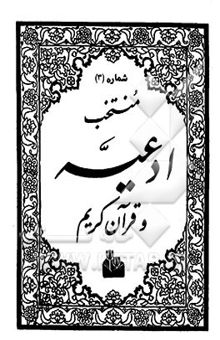 شماره (۳)
مُنتخب
ادعیّه
و قرآن کریم